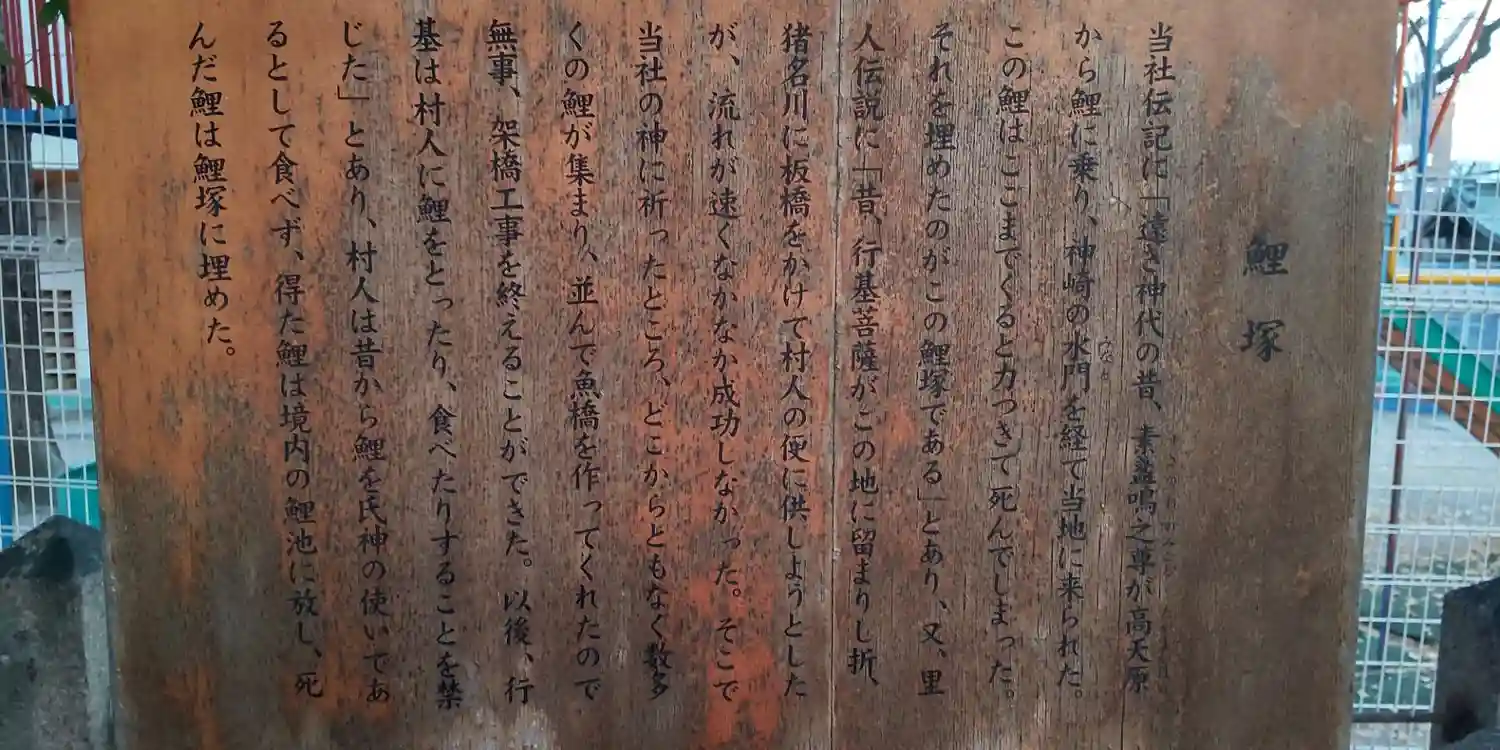 鯉塚
当社伝記に「遠き神代の昔、素盞嗚之尊が高天原
から鯉に乗り、神崎の水門を経て当地に来られた。
この鯉はここまでくると力つきて死んでしまった。
それを埋めたのがこの鯉塚である」とあり、又、里
人伝説に「昔、行基菩薩がこの地に留まりし折、
猪名川に板橋をかけて村人の便に供しようとした
が、流れが速くなかなか成功しなかった。そこで
当社の神に祈ったところ、どこからともなく数多
くの鯉が集まり、並んで魚橋を作ってくれたので
無事、架橋工事を終えることができた。以後、行
基は村人に鯉をとったり、食べたりすることを禁
じた」とあり、村人は昔から鯉を氏神の使いであ
るとして食べず、得た鯉は境内の鯉池に放し、死
んだ鯉は鯉塚に埋めた。